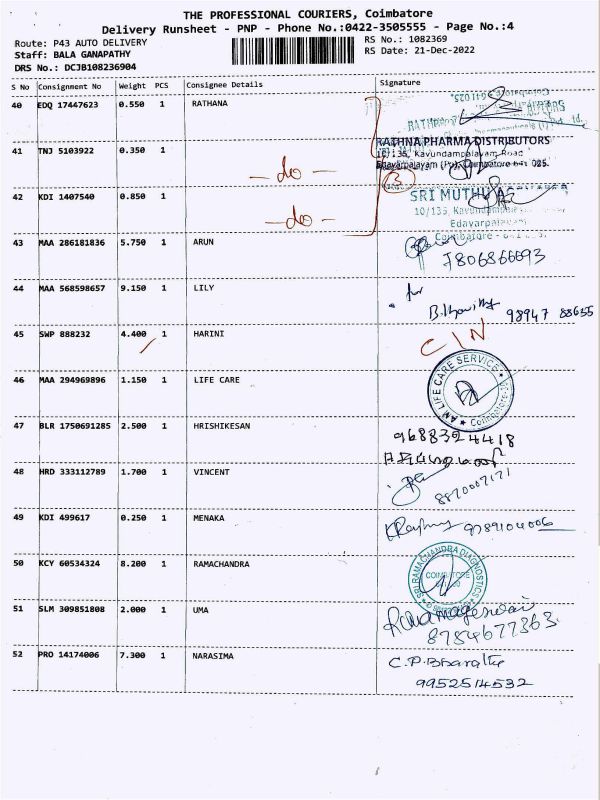 THE PROFESSIONAL COURIERS, Coimbatore
Delivery Runsheet - PNP - Phone No.:0422-3505555 - Page No.:4
Route: P43 AUTO DELIVERY
RS No.: 1082369
Staff: BALA GANAPATHY
RS Date: 21-Dec-2022
DRS No.: DCJB108236904
S No Consignment No Weight PCS Consignee Details Signature
40 EDQ 17447623 0.550 1 RATHANA
41 TNJ 5103922 0.350 1
RATHNA PHARMA DISTRIBUTORS
10/135, Kavundampalayam Road
Edayarpalayam (Po), Coimbatore 641 025.
- do -
3
42 KDI 1407540 0.850 1
SRI MUTHU
10/135,
Edayarpalayam
- do -
Coimbatore -
43 MAA 286181836 5.750 1 ARUN
7806866693
44 MAA 568598657 9.150 1 LILY
for
98947 88655
45 SWP 888232 4.400 1 HARINI
C/N
46 MAA 294969896 1.150 1 LIFE CARE
LIFE CARE SERVICE
Coimbatore
47 BLR 1750691285 2.500 1 HRISHIKESAN
9688324418
48 HRD 333112789 1.700 1 VINCENT
8870007171
49 KDI 499617 0.250 1 MENAKA
9789104006
50 KCY 60534324 8.200 1 RAMACHANDRA
SRI RAMACHANDRA DIAGNOSTICS
COIMBATORE
51 SLM 309851808 2.000 1 UMA
8754677363
52 PRO 14174006 7.300 1 NARASIMA
C.P.Bharathe
9952514532